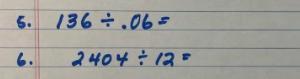 5. 136 ÷ .06 =
6. 2404 ÷ 12 =